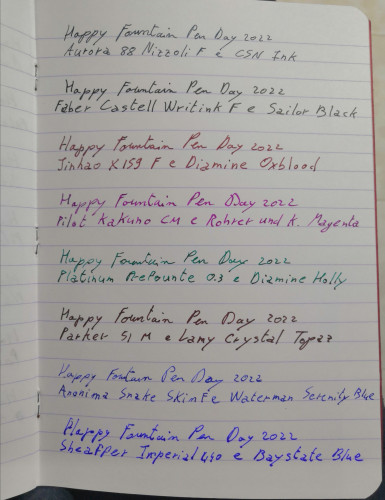 Happy Fountain Pen Day 2022
Aurora 88 Nizzoli F e CSN Ink
Happy Fountain Pen Day 2022
Faber Castell Writink F e Sailor Black
Happy Fountain Pen Day 2022
Jinhao X159 F e Diamine Oxblood
Happy Fountain Pen Day 2022
Pilot Kakuno CM e Rohrer und K. Magenta
Happy Fountain Pen Day 2022
Platinum Prepounte 0.3 e Diamine Holly
Happy Fountain Pen Day 2022
Parker 51 M e Lamy Crystal Topaz
Happy Fountain Pen Day 2022
Anonima Snake Skin F e Waterman Serenity Blue
Happy Fountain Pen Day 2022
Sheaffer Imperial 440 e Baystate Blue